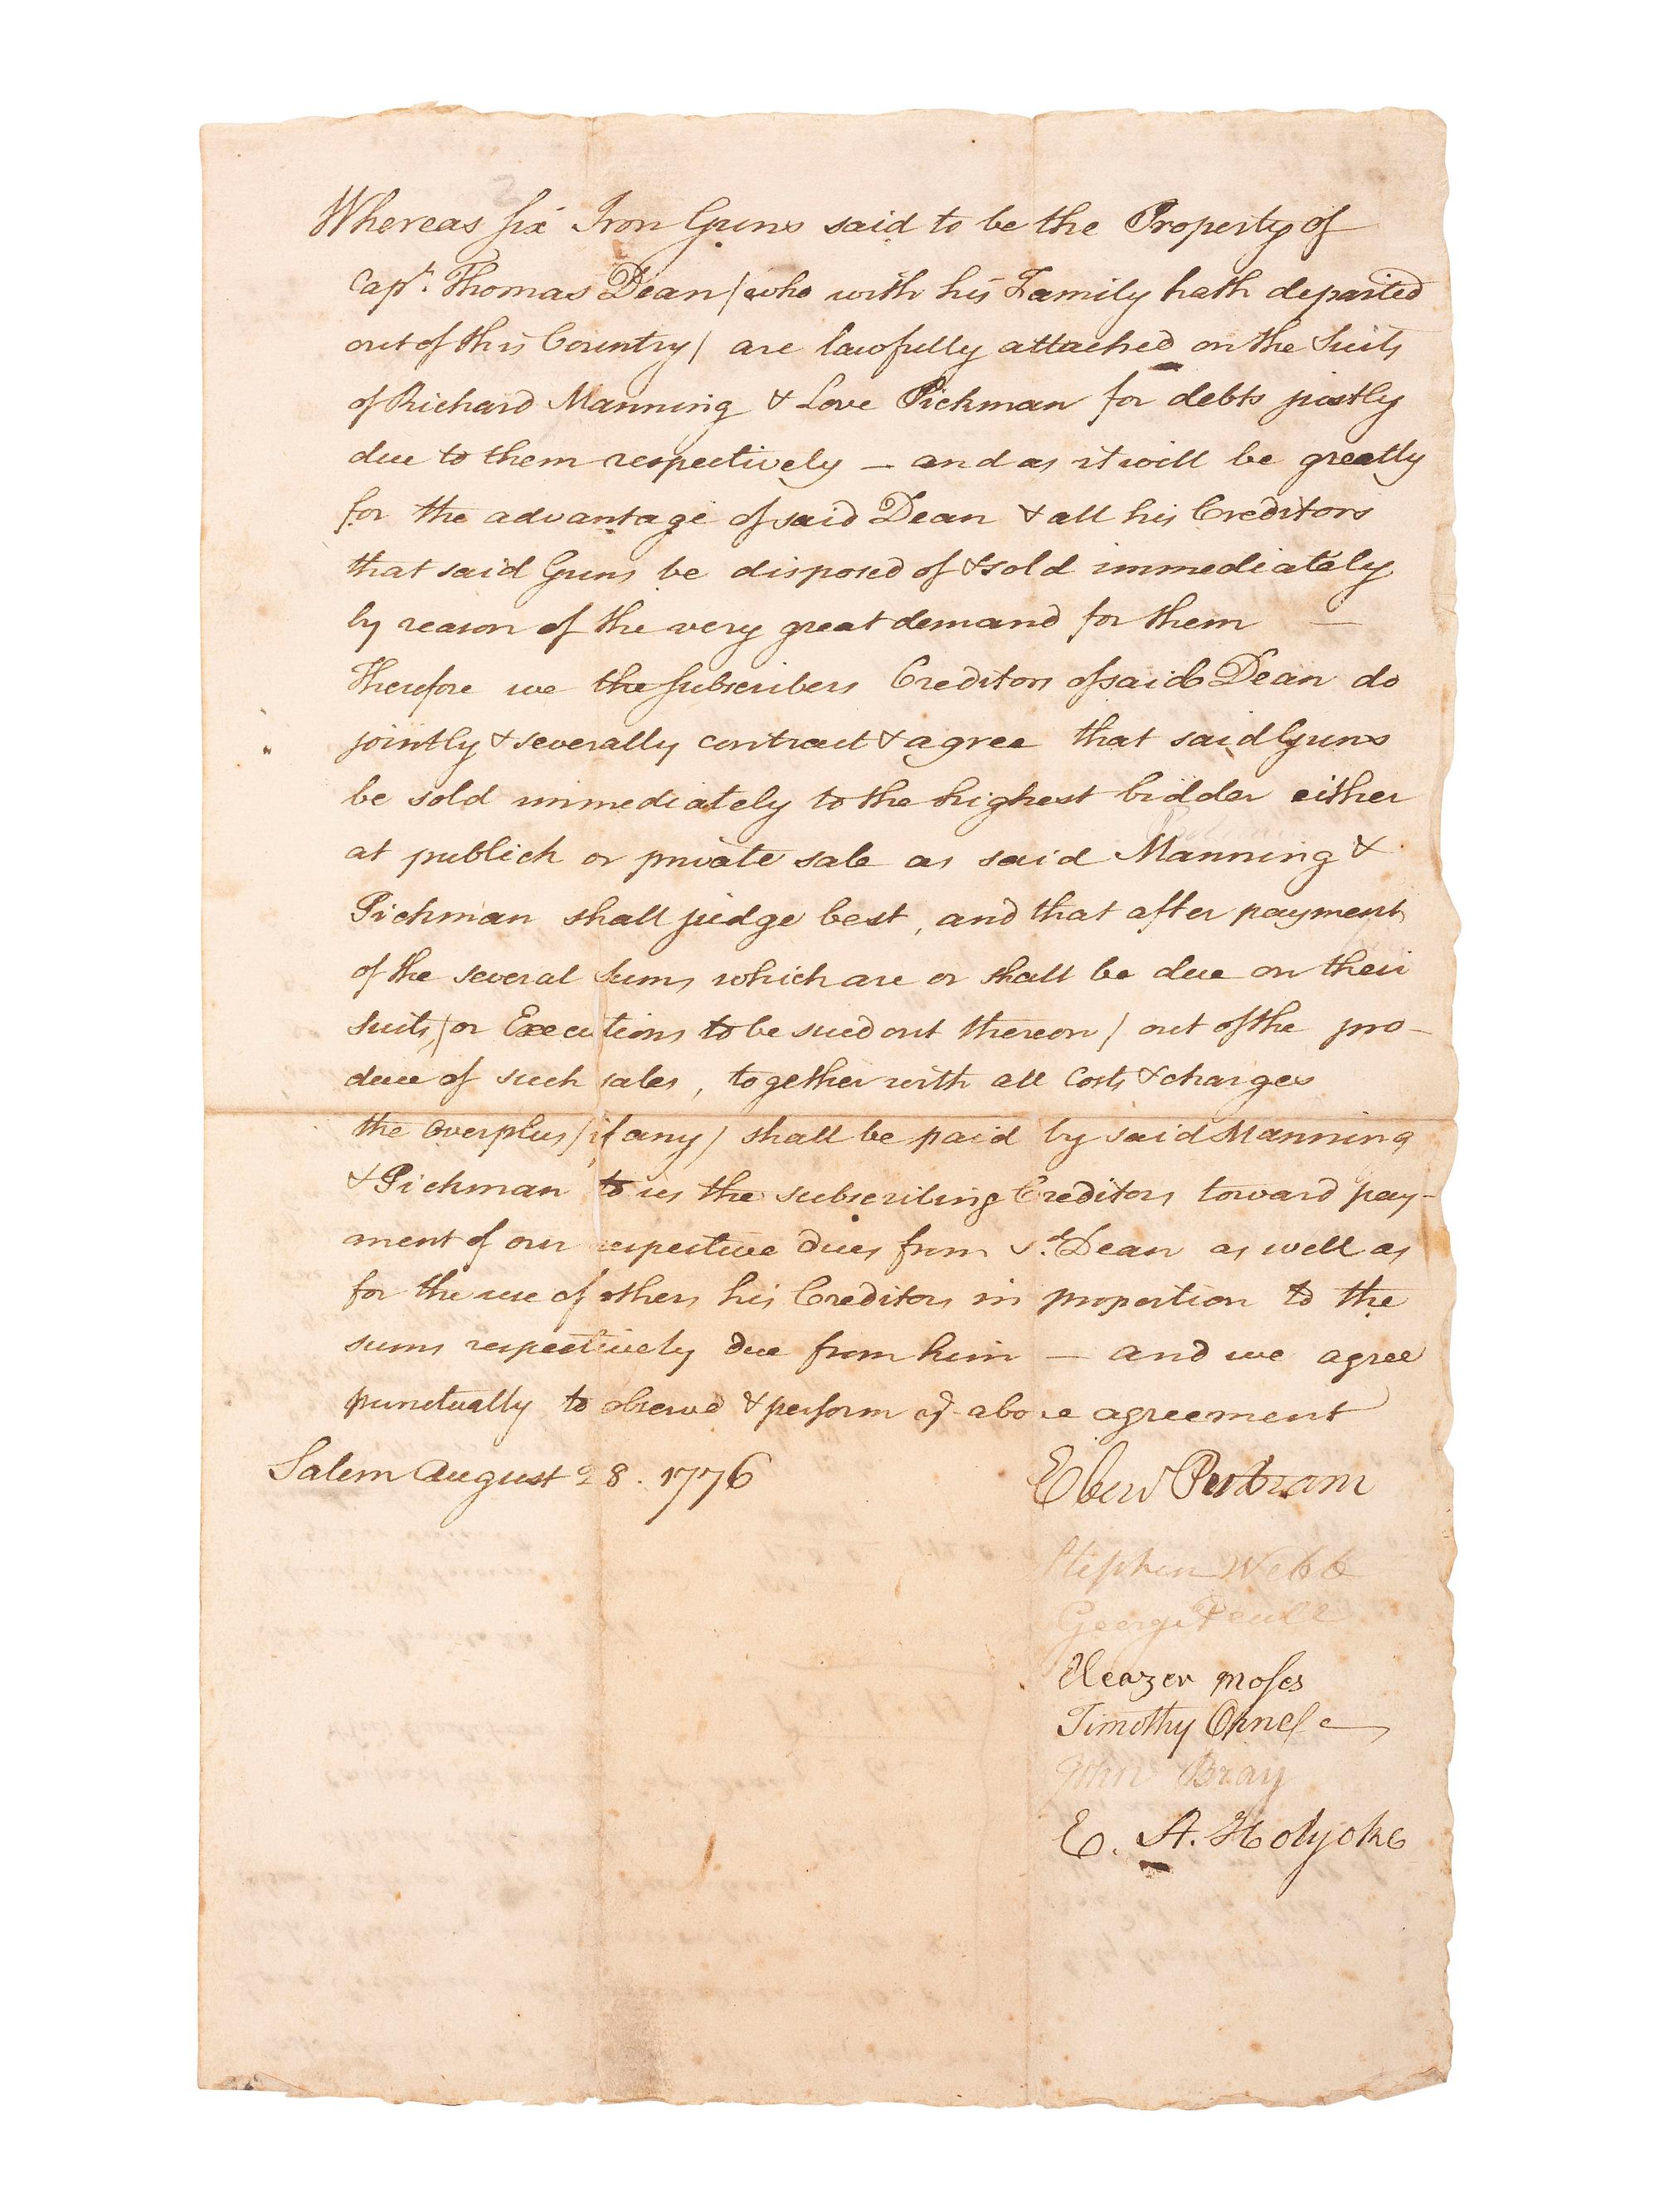 Whereas six Iron Guns said to be the Property of
Capt. Thomas Dean / who with his Family hath departed
out of this Country / are lawfully attached on the Suits
of Richard Manning & Love Pickman for debts justly
due to them respectively — and as it will be greatly
for the advantage of said Dean & all his Creditors
that said Guns be disposed of & sold immediately
by reason of the very great demand for them —
Therefore we the subscribers Creditors of said Dean do
jointly & severally contract & agree that said Guns
be sold immediately to the highest bidder either
at publick or private sale as said Manning &
Pickman shall judge best, and that after payment
of the several sums which are or shall be due on their
suits / or Executions to be sued out thereon / out of the pro-
duce of such sales, together with all Costs & charges
the overplus / if any / shall be paid by said Manning
& Pickman to us the subscribing Creditors toward pay-
ment of our respective dues from sd. Dean as well as
for the use of others his Creditors in proportion to the
sums respectively due from him — and we agree
punctually to observe & perform ye above agreement
Salem August 28. 1776
Stephen Webb
George
Eleazer Moses
Timothy Orne
John Bray
E. A. Holyoke